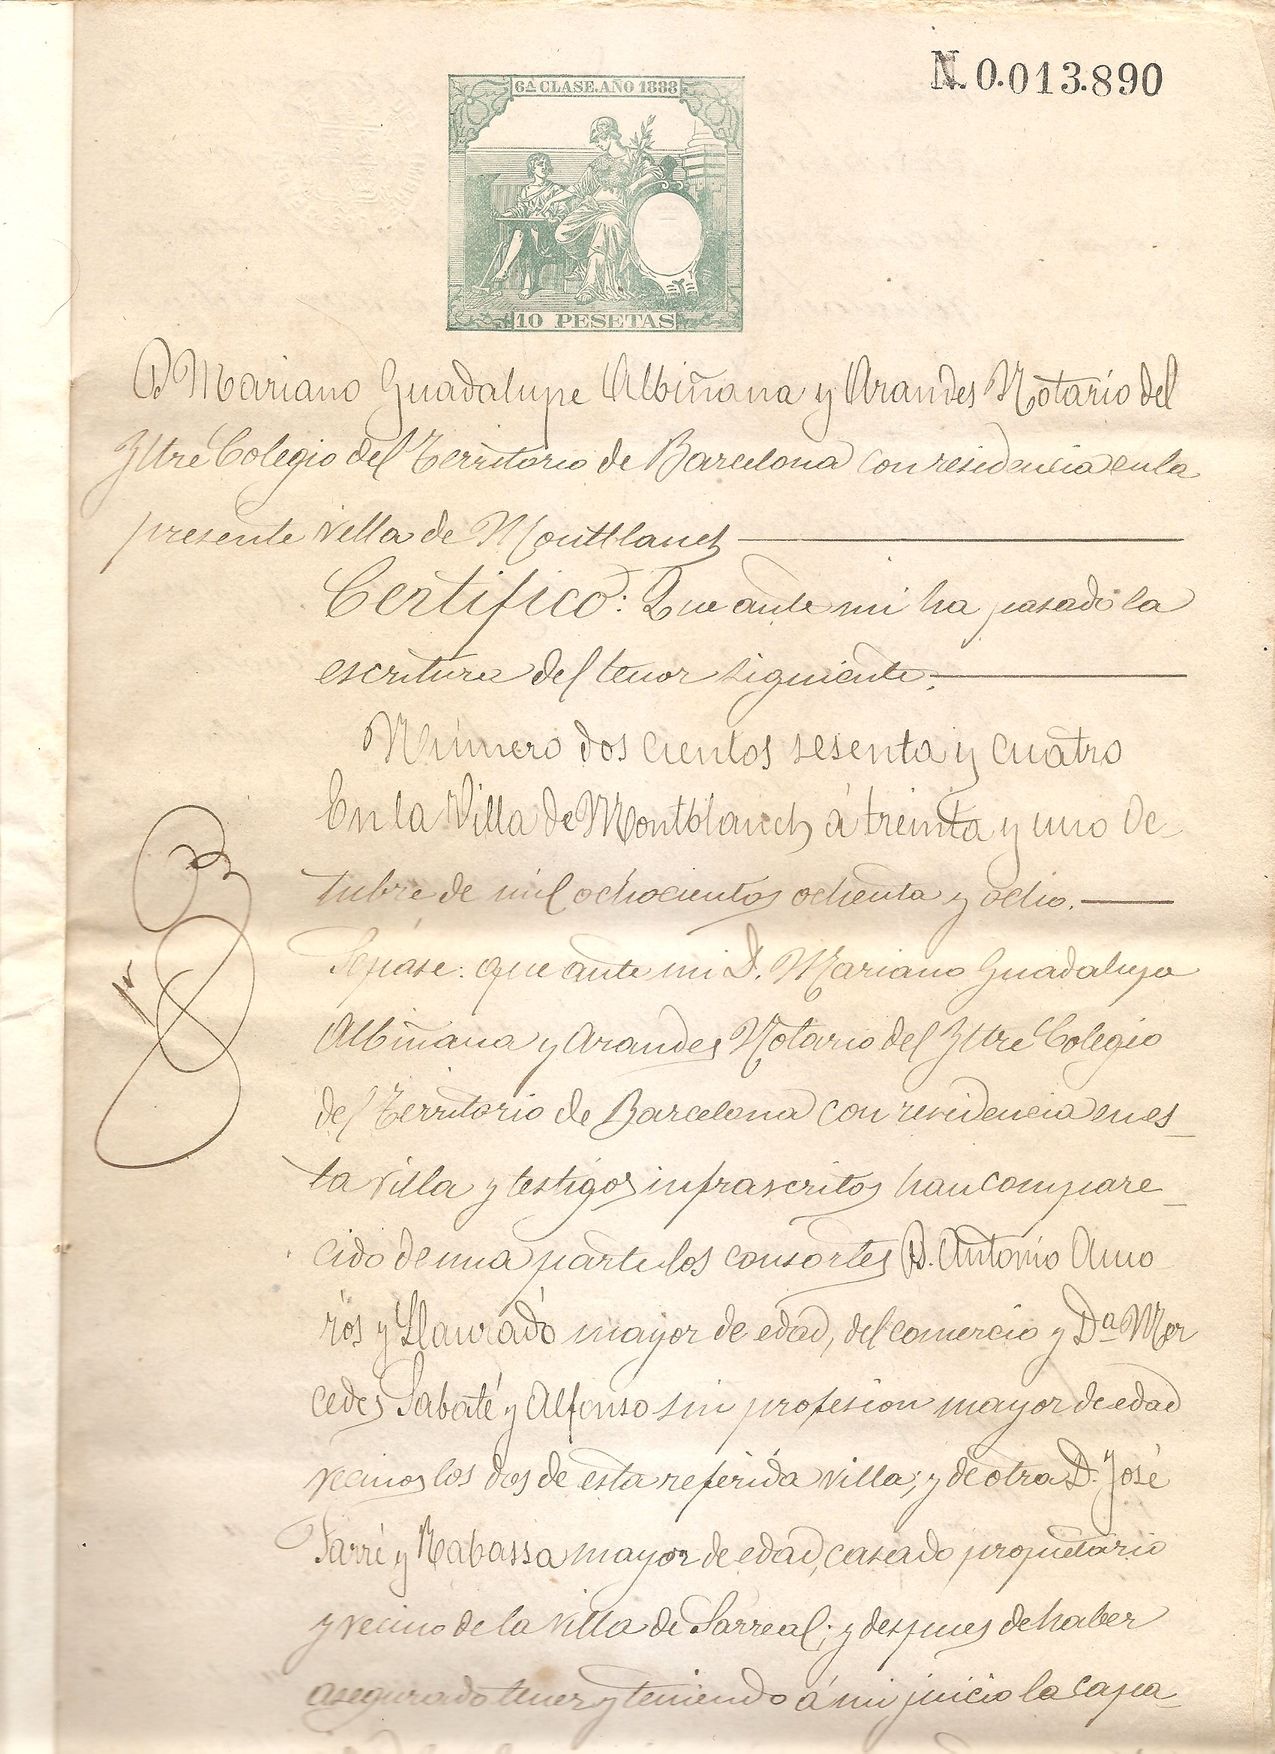 6ª CLASE. AÑO 1888
N. 0.013.890
10 PESETAS
D Mariano Guadalupe Albiñana y Arandes Notario del
Iltre Colegio del Territorio de Barcelona con residencia en la
presente villa de Montblanch
Certifico: Que ante mi ha pasado la
escritura del tenor siguiente.
Número dos cientos sesenta y cuatro
En la Villa de Montblanch á treinta y uno Oc-
tubre de mil ochocientos ochenta y ocho.
Sepáse: que ante mi D. Mariano Guadalupe
Albiñana y Arandes Notario del Iltre Colegio
del Territorio de Barcelona con residencia en es-
ta villa y testigos infrascritos han compare-
cido de una parte los consortes D. Antonio Amo
rós y Llauradó mayor de edad, del comercio y Dª Mer
cedes Sabaté y Alfonso sin profesion mayor de edad
vecinos los dos de esta referida villa; y de otra D. José
Farré y Rabassa mayor de edad, casado propietario
y vecino de la villa de Sarreal; y despues de haber
asegurado tener y teniendo á mi juicio la capa-